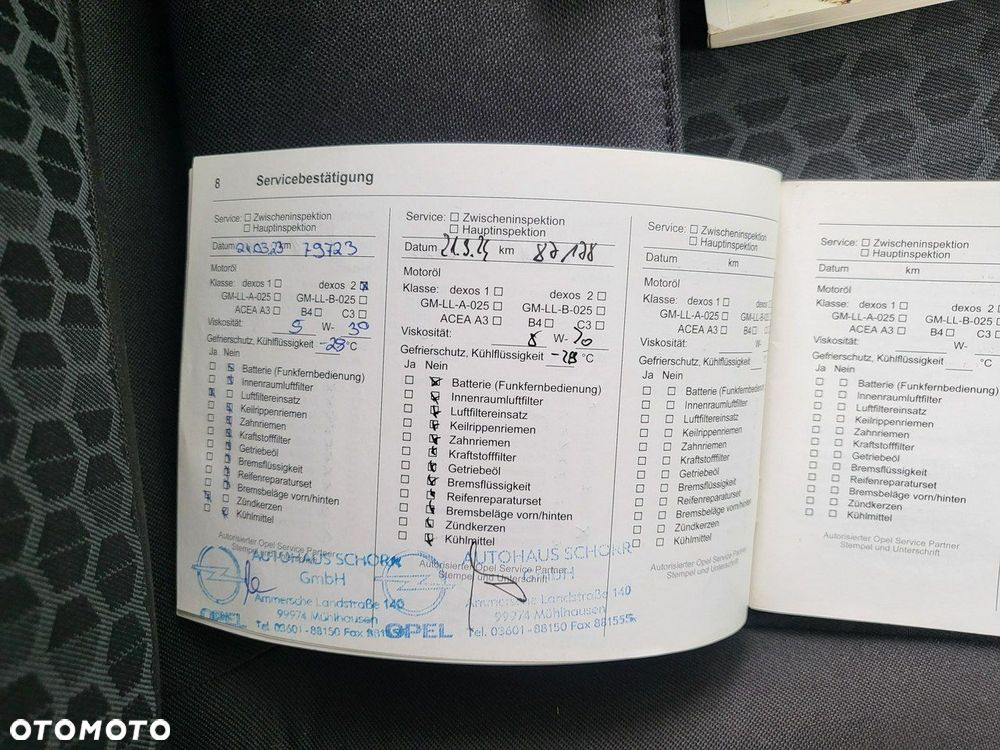 8 Servicebestätigung
Service: ☐ Zwischeninspektion
☐ Hauptinspektion
Datum 21.03.23 km 79723
Motoröl
Klasse: dexos 1 ☐ dexos 2 ☒
GM-LL-A-025 ☐ GM-LL-B-025 ☐
ACEA A3 ☐ B4 ☐ C3 ☐
Viskosität: 5 W- 30
Gefrierschutz, Kühlflüssigkeit -28 °C
Ja Nein
☐ ☒ Batterie (Funkfernbedienung)
☐ ☒ Innenraumluftfilter
☒ ☐ Luftfiltereinsatz
☐ ☒ Keilrippenriemen
☐ ☒ Zahnriemen
☐ ☒ Kraftstofffilter
☐ ☒ Getriebeöl
☐ ☒ Bremsflüssigkeit
☐ ☒ Reifenreparaturset
☐ ☒ Bremsbeläge vorn/hinten
☒ ☐ Zündkerzen
☐ ☒ Kühlmittel
Autorisierter Opel Service Partner
Stempel und Unterschrift
AUTOHAUS SCHORR
GmbH
Ammersche Landstraße 140
99974 Mühlhausen
Tel. 03601-88150 Fax
OPEL
Service: ☐ Zwischeninspektion
☐ Hauptinspektion
Datum km 87178
Motoröl
Klasse: dexos 1 ☐ dexos 2 ☐
GM-LL-A-025 ☐ GM-LL-B-025 ☐
ACEA A3 ☐ B4 ☐ C3 ☐
Viskosität: W- 30
Gefrierschutz, Kühlflüssigkeit -28 °C
Ja Nein
☐ ☒ Batterie (Funkfernbedienung)
☐ ☒ Innenraumluftfilter
☐ ☒ Luftfiltereinsatz
☐ ☒ Keilrippenriemen
☐ ☒ Zahnriemen
☐ ☒ Kraftstofffilter
☐ ☒ Getriebeöl
☐ ☒ Bremsflüssigkeit
☐ ☒ Reifenreparaturset
☐ ☒ Bremsbeläge vorn/hinten
☐ ☒ Zündkerzen
☐ ☒ Kühlmittel
Autorisierter Opel Service Partner
Stempel und Unterschrift
AUTOHAUS SCHORR
GmbH
Ammersche Landstraße 140
99974 Mühlhausen
Tel. 03601-88150 Fax 881555
OPEL
Service: ☐ Zwischeninspektion
☐ Hauptinspektion
Datum km
Motoröl
Klasse: dexos 1 ☐ dexos
GM-LL-A-025 ☐ GM-LL-B-025
ACEA A3 ☐ B4 ☐ C3
Viskosität: W-
Gefrierschutz, Kühlflüssigkeit
Ja Nein
☐ ☐ Batterie (Funkfernbedienung)
☐ ☐ Innenraumluftfilter
☐ ☐ Luftfiltereinsatz
☐ ☐ Keilrippenriemen
☐ ☐ Zahnriemen
☐ ☐ Kraftstofffilter
☐ ☐ Getriebeöl
☐ ☐ Bremsflüssigkeit
☐ ☐ Reifenreparaturset
☐ ☐ Bremsbeläge vorn/hinten
☐ ☐ Zündkerzen
☐ ☐ Kühlmittel
Autorisierter Opel Service Partner
Stempel und Unterschrift
Service: ☐ Zwischeninspektion
☐ Hauptinspektion
Datum km
Motoröl
Klasse: dexos 1 ☐ dexos 2 ☐
GM-LL-A-025 ☐ GM-LL-B-025 ☐
ACEA A3 ☐ B4 ☐ C3 ☐
Viskosität: W-
Gefrierschutz, Kühlflüssigkeit °C
Ja Nein
☐ ☐ Batterie (Funkfernbedienung)
☐ ☐ Innenraumluftfilter
☐ ☐ Luftfiltereinsatz
☐ ☐ Keilrippenriemen
☐ ☐ Zahnriemen
☐ ☐ Kraftstofffilter
☐ ☐ Getriebeöl
☐ ☐ Bremsflüssigkeit
☐ ☐ Reifenreparaturset
☐ ☐ Bremsbeläge vorn/hinten
☐ ☐ Zündkerzen
☐ ☐ Kühlmittel
Autorisierter Opel Service Partner
Stempel und Unterschrift
OTOMOTO